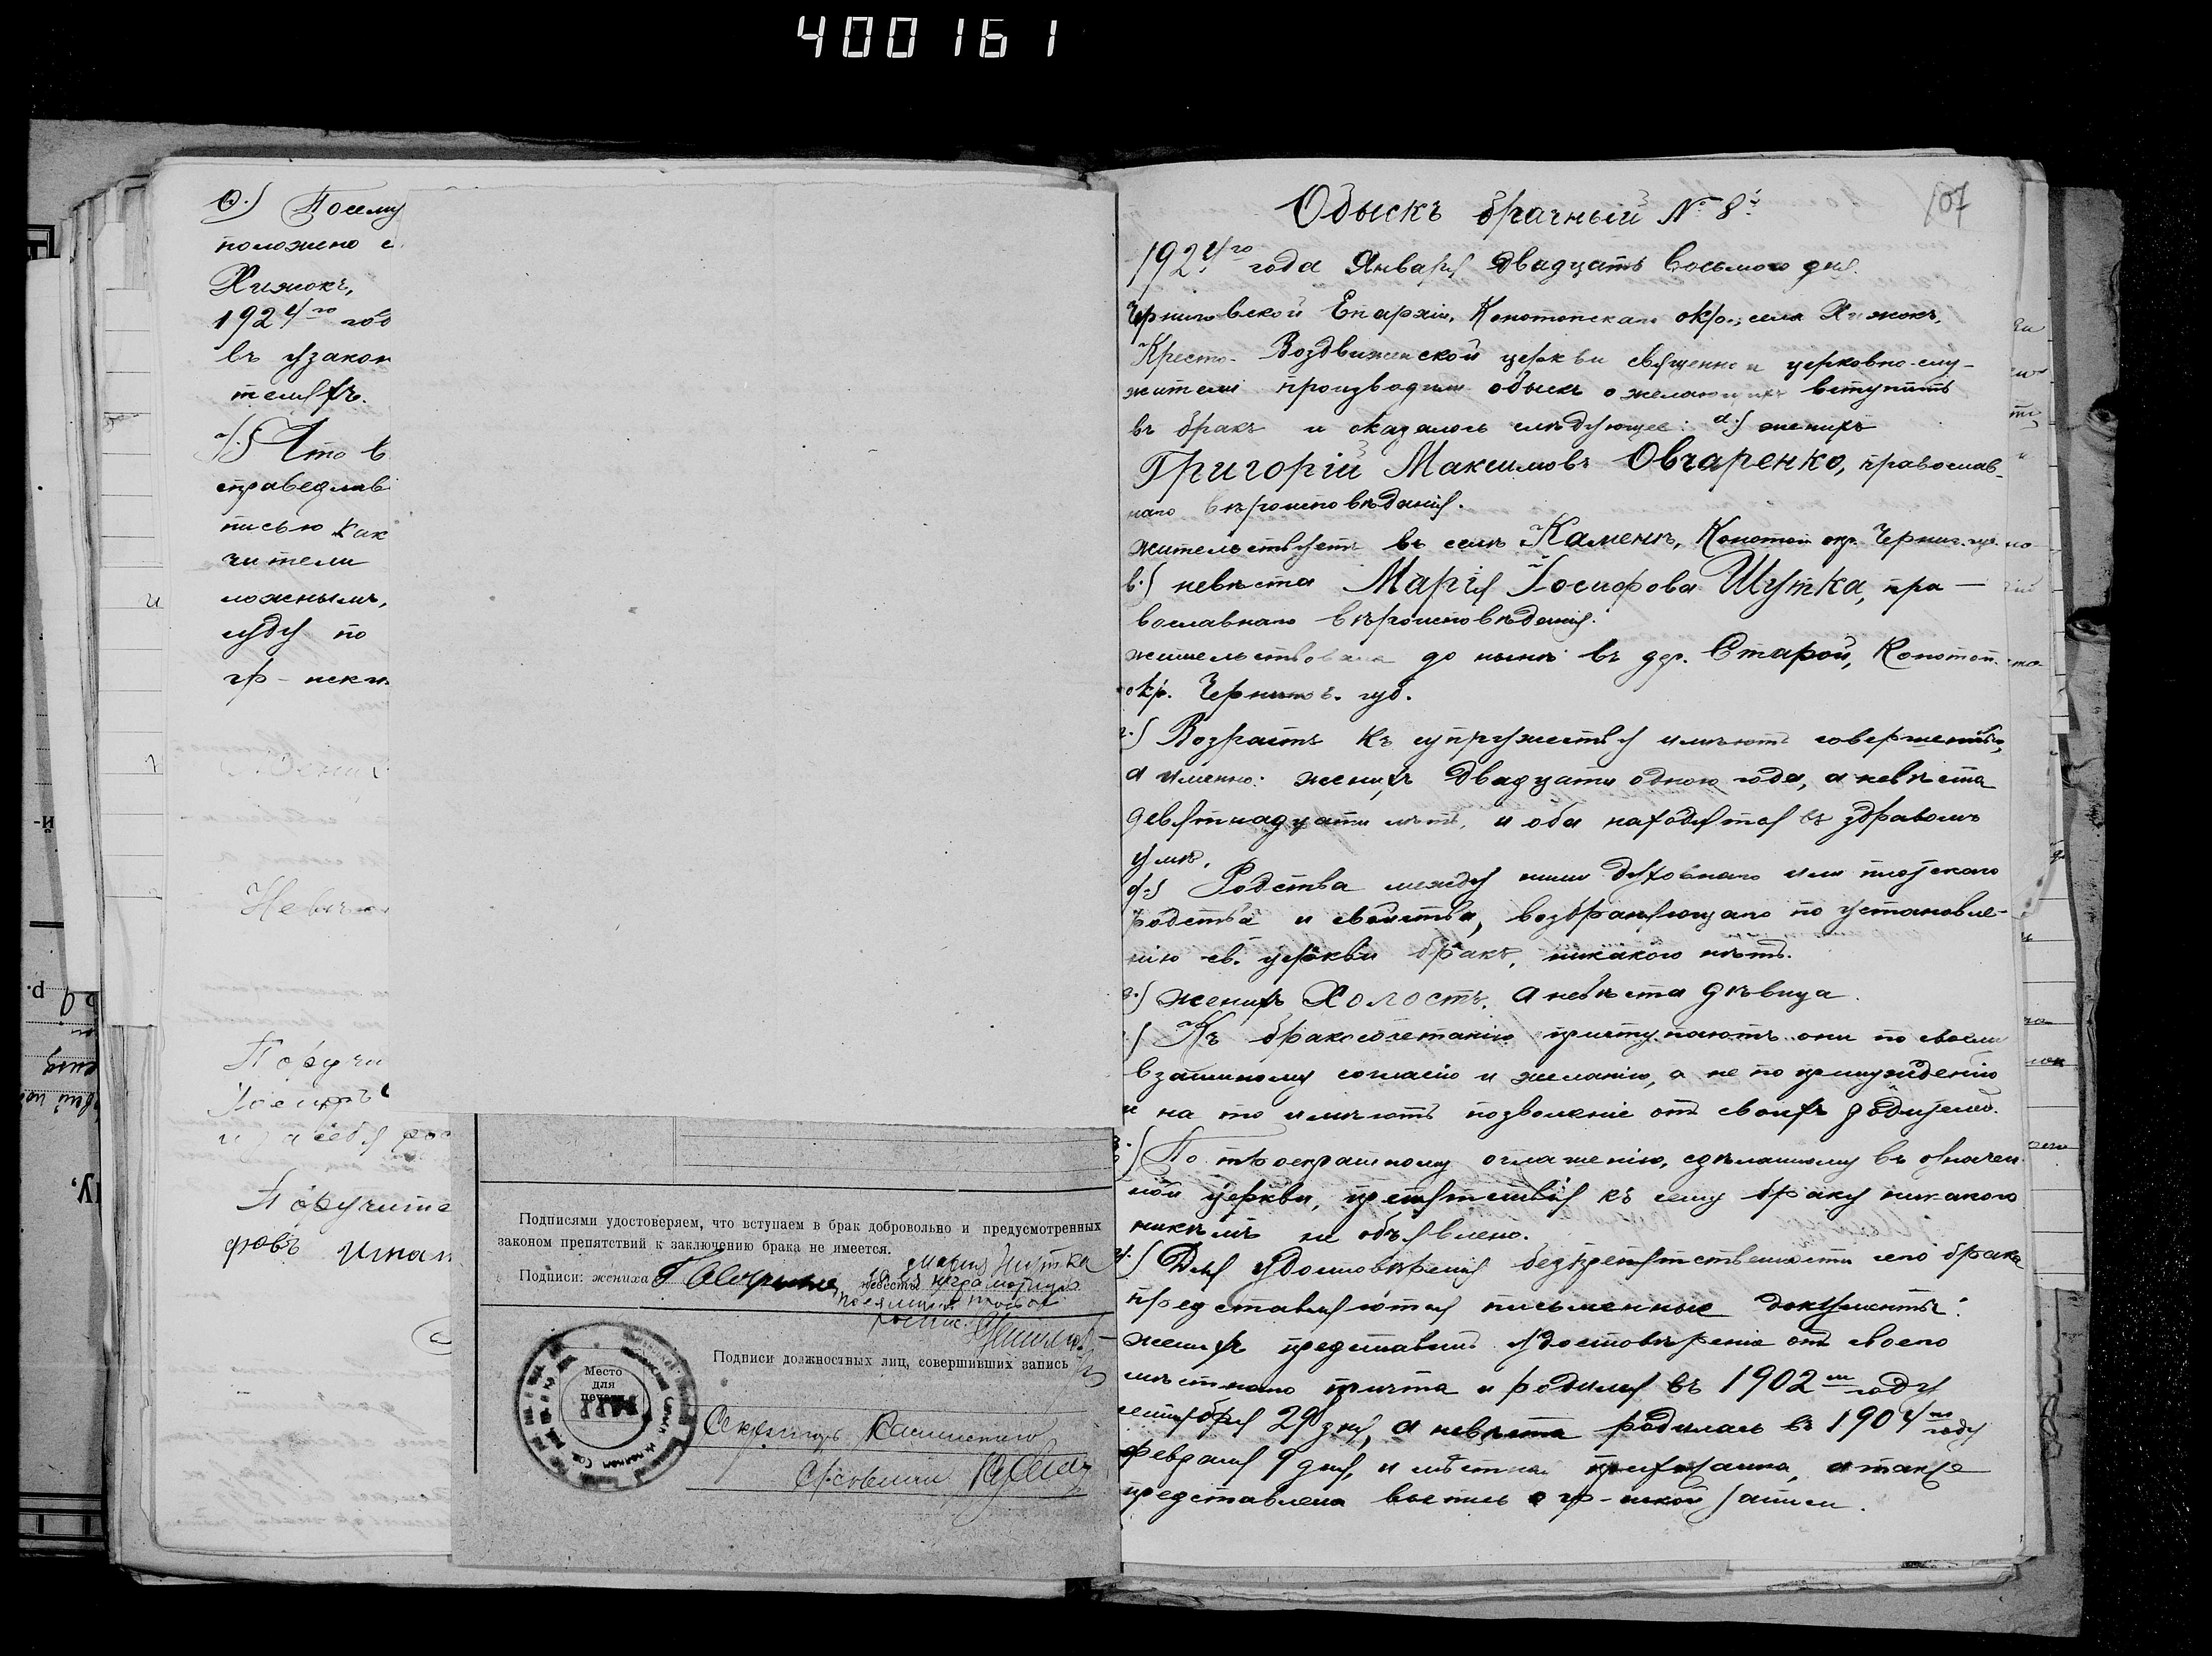 400161
Ѳ.) Посему
положено с
Хижокъ,
1924го год
въ узакон
теляхъ.
Что в
справедлив
писью как
чители
ложнымъ,
суду по
гр-
Невѣ
Поручи
Іосифъ
и за себя рос
Поручите
фовъ Игнат
Подписями удостоверяем, что вступаем в брак добровольно и предусмотренных
законом препятствий к заключению брака не имеется.
Мария Шутка
Подписи: жениха невесты неграмотная
по ея личной просьбе
распис.
Место
для
печати
Подписи должностных лиц, совершивших запись
Секретарь
107
Обыскъ брачный № 8й
1924го года Января двадцать восьмого дня.
Черниговской Епархіи, Конотопскаго окр., села Хижокъ,
Кресто-Воздвиженской церкви священно и церковно-слу-
жители производили обыскъ о желающихъ вступить
въ бракъ и оказалось слѣдующее: а.) женихъ
Григорій Максимовъ Овчаренко, православ-
наго вѣроисповѣданія.
жительствуетъ въ селѣ Каменкѣ, Конотоп. окр. Черниг. губ.
в.) невѣста Марія Іосифова Шутка, пра-
вославнаго вѣроисповѣданія.
жительствовала до нынѣ въ дер. Старой, Конотоп.
окр. Чернигов. губ.
г.) Возрастъ къ супружеству имѣютъ совершенный,
а именно: женихъ двадцати одного года, а невѣста
девятнадцати лѣтъ, и оба находятся въ здравомъ
умѣ.
д.) Родства между ними духовнаго или плотскаго
родства и свойства, возбраняющаго по установле-
нію св. церкви бракъ, никакого нѣтъ.
женихъ Холостъ, а невѣста дѣвица.
Къ бракосочетанію приступаютъ они по своему
взаимному согласію и желанію, а не по принужденію
и на то имѣютъ позволеніе отъ своихъ родителей.
По троекратному оглашенію, сдѣланному въ означен-
ной церкви, препятствія къ сему браку никакого
никѣмъ не объявлено.
Для удостовѣренія безпрепятственности сего брака
представляются письменные документы:
женихъ представилъ удостовѣреніе отъ своего
мѣстнаго причта и родился въ 1902м году
сентября 29 дня, а невѣста родилась въ 1904м году
февраля 9 дня, и мѣстная прихожанка, а также
представлена выпись о гр-нской записи.